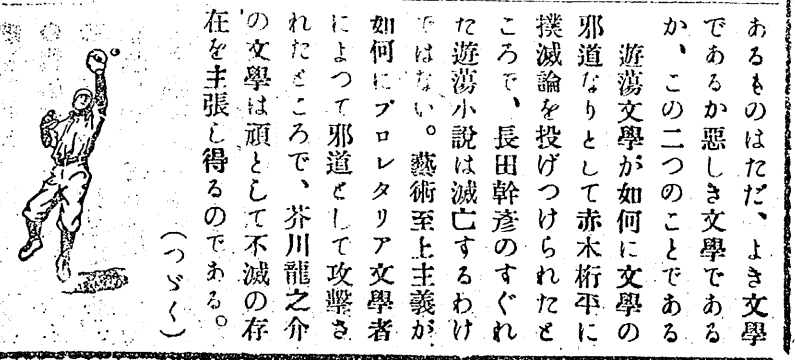 あるものはただ、よき文學
であるか惡しき文學である
か、この二つのことである
遊蕩文學が如何に文學の
邪道なりとして赤木桁平に
撲滅論を投げつけられたと
ころで、長田幹彦のすぐれ
た遊蕩小説は滅亡するわけ
ではない。藝術至上主義が
如何にプロレタリア文學者
によつて邪道として攻擊さ
れたところで、芥川龍之介
の文學は頑として不滅の存
在を主張し得るのである。
（つゞく）